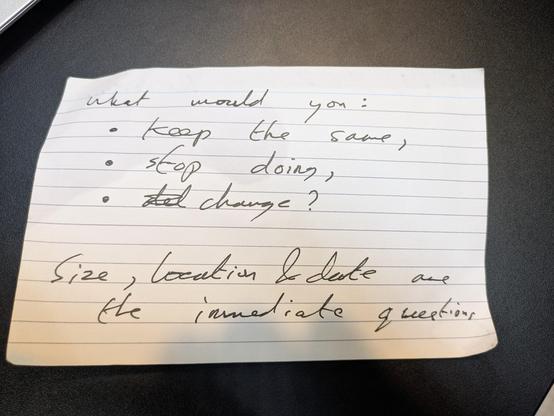 what would you:
• keep the same,
• stop doing,
• change?
Size, location & date are
the immediate questions